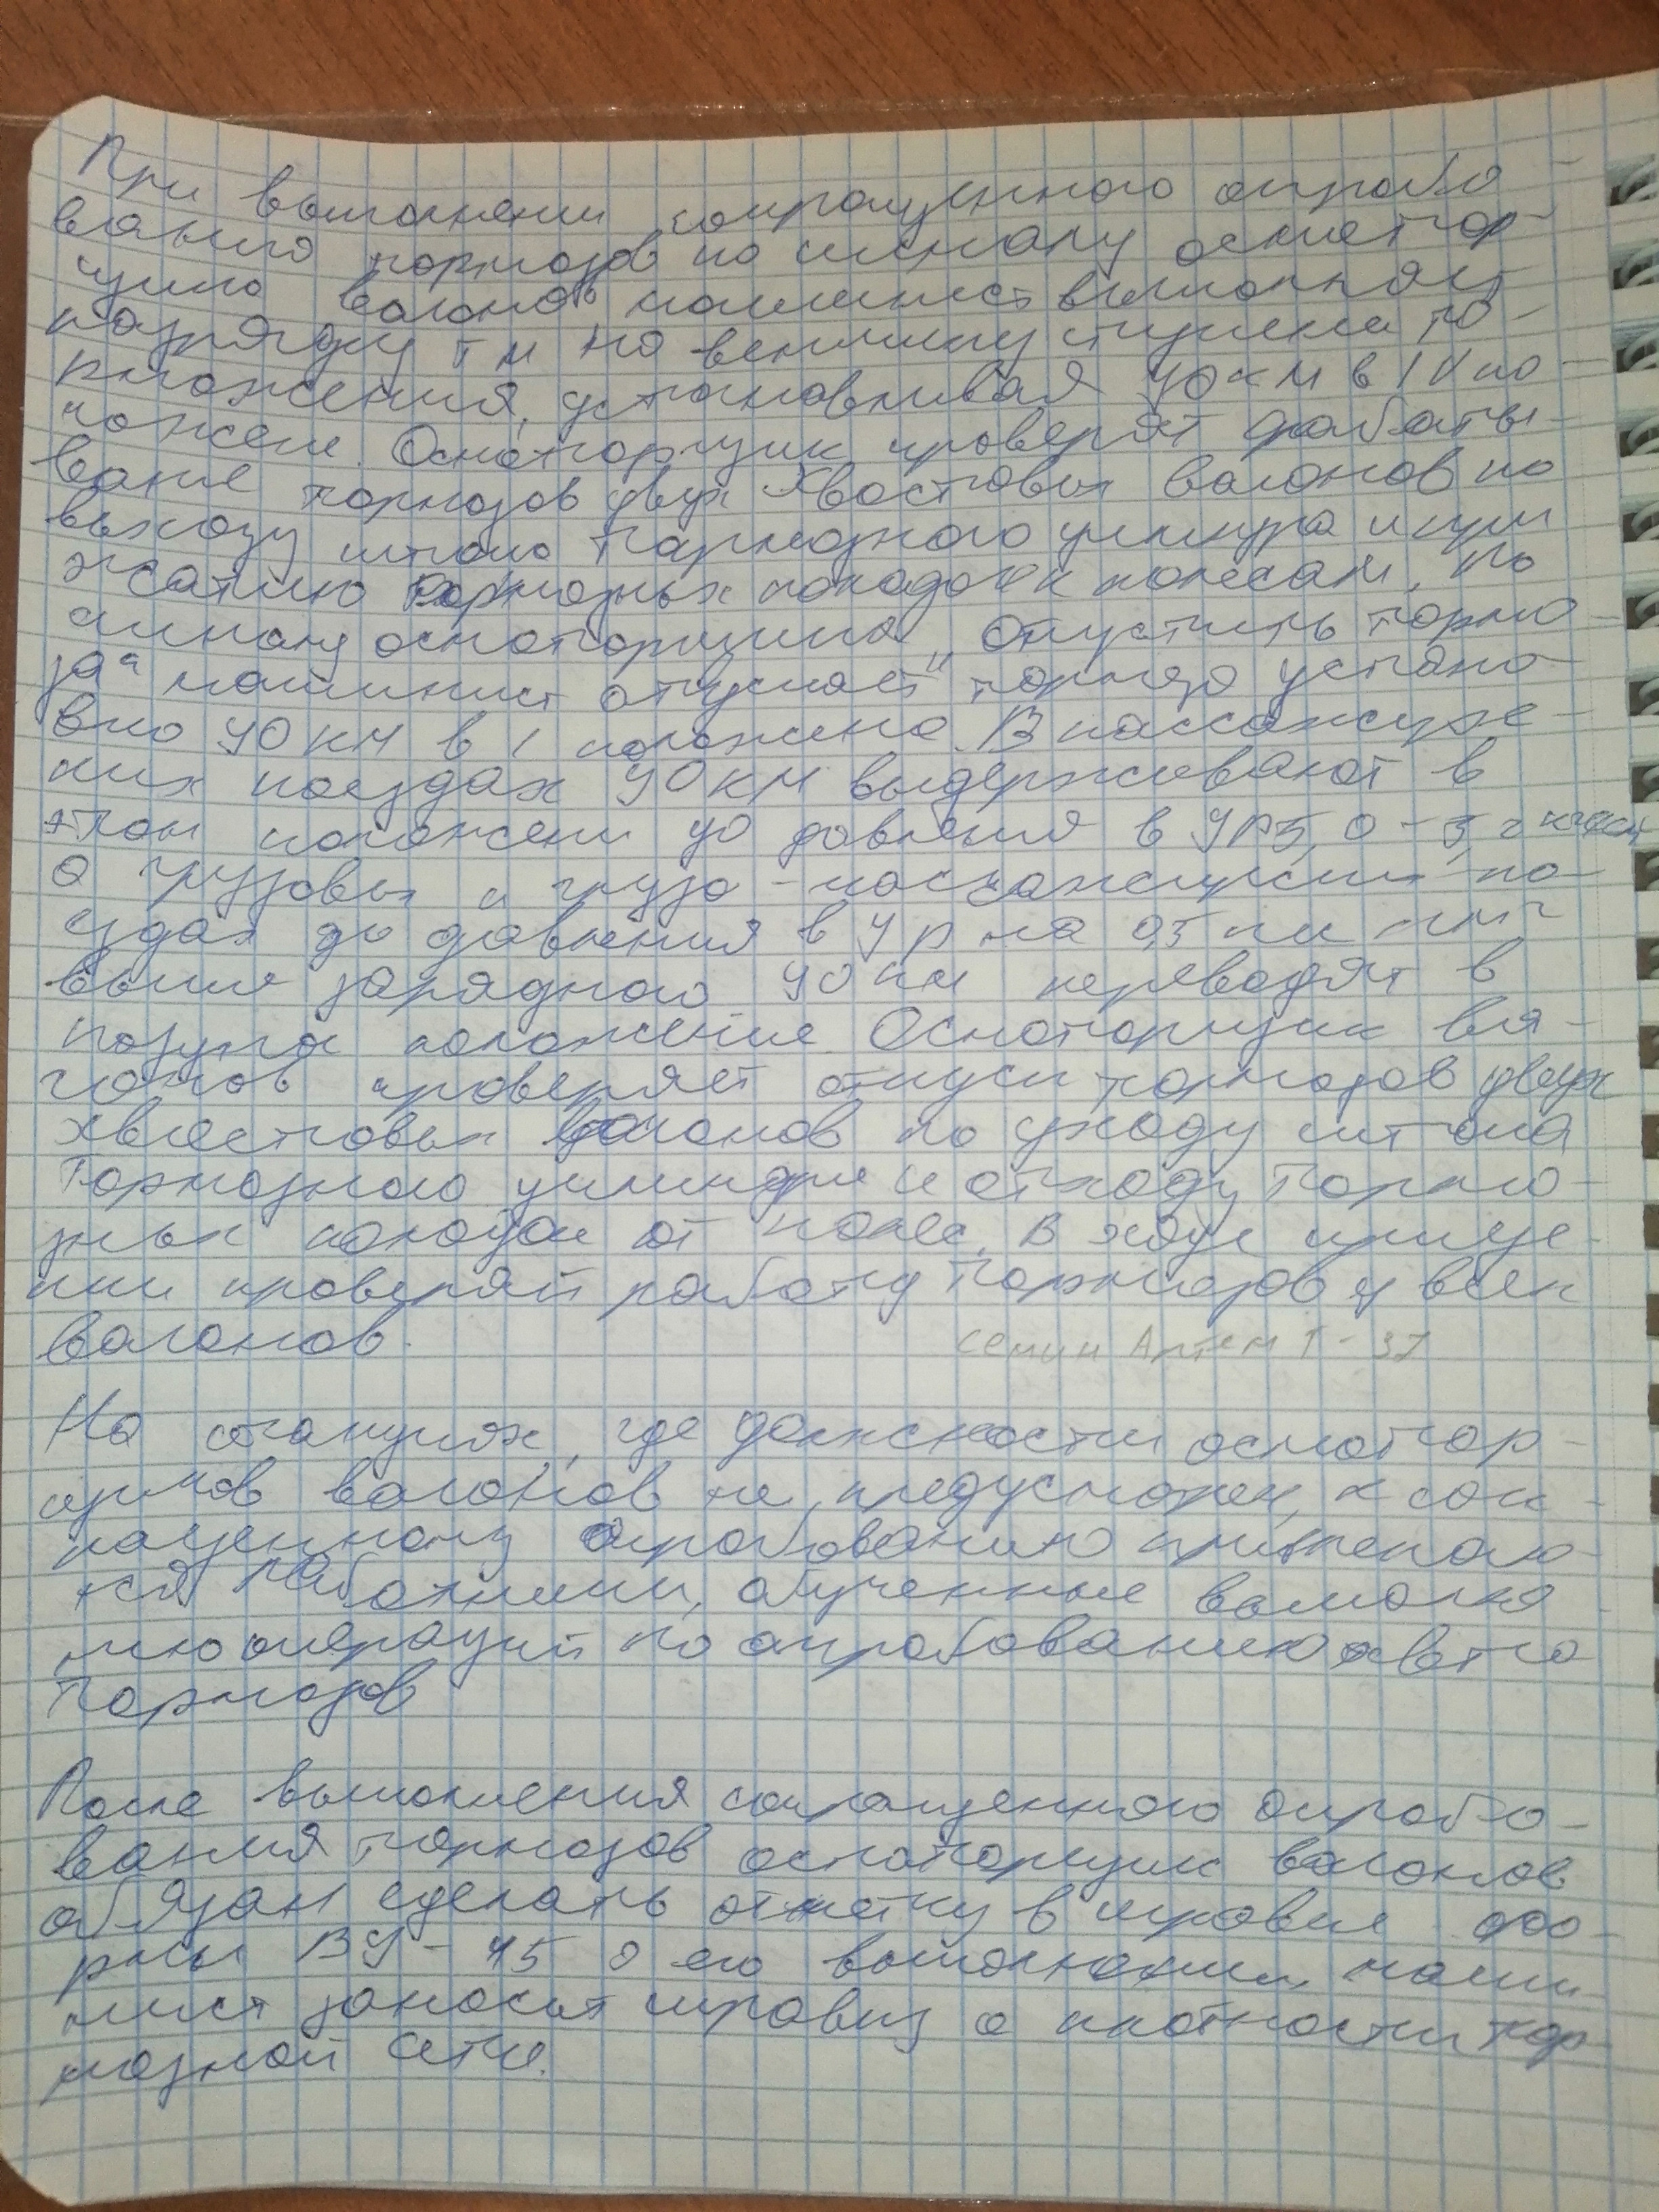 При выполнени сокращенного опробо-
вания тормозов по сигналу осмотор-
щика вагонов машинист выполняет
разрядку ТМ на величину ступени то-
рможения, устанавливая УОКМ в IV по-
ложени. Осмоторщик проверят срабаты-
вание тормозов двух хвостовых вагонов по
выходу штока тормозного цилиндра и при
жатию тормозных колодок к колесам, По
сигналу осмоторщика „отпустить тормо
за“ машинист отпускает тормоза устано-
вко УОКМ в I положение. В пассажирс-
ких поездах УОКМ выдерживают в
этом положени до давления в УР 5,0-5,2 кгс/см
о грузовых и грузо-пассажирских по-
ездах до давления в УР на 0,5 кгс/см²
выше зарядного УОКМ переводят в
поездное положение. Осмоторщик ва-
гонов проверяет отпуск тормозов двух
хвостовых вагонов по уходу штока
тормозного цилиндра и отходу тормо-
зных колодок от колес. В ходе прице-
пки проверяй работу тормозов у всех
вагонов.
Семин Артем Т-37
На станциях, где должности осмотор-
щиков вагонов не предусмотрен, к сок-
ращенному опробованию привлекаю-
тся работники, обученные выполне
нию операций по опробованию авто
тормозов
После выполнения сокращенного опробо-
вания тормозов осмоторщик вагонов
обязан сделать отметку в справке фо-
рмы ВУ-45 о его выполнении, маши
нист заносит справку о плотности тор
мозной сети.